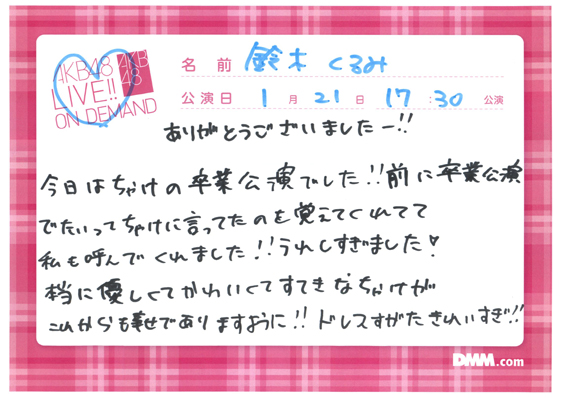 AKB48
LIVE!!
ON DEMAND
AKB
48
名前 鈴木 くるみ
公演日 1月21日 17:30 公演
ありがとうございましたー!!
今日はちゃけの卒業公演でした!!前に卒業公演
でたいってちゃけに言ってたのを覚えてくれてて
私も呼んでくれました!!うれしすぎました♡
本当に優しくてかわいくてすてきなちゃけが
これからも幸せでありますように!!ドレスすがたきれいすぎ!!
DMM.com